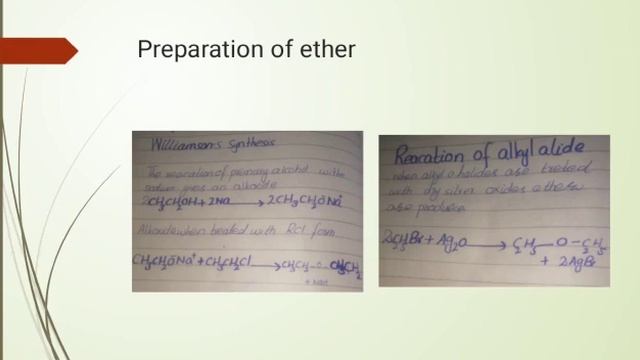 Preparation of ether
Williamsons Synthesis
The rearcation of primary alcohol with
sodium gives an alkoxide
2CH₃CH₂OH + 2Na → 2CH₃CH₂ONa⁺
Alkoxide when heated with RCl form
CH₃CH₂ONa⁺ + CH₃CH₂Cl → CH₃CH₂-O-CH₂CH₃
Rearcation of alkyl alide
when alkyl halides are treted
with dry silver oxides ethers
are produce
2C₂H₅Br + Ag₂O → C₂H₅-O-C₂H₅
+ 2AgBr